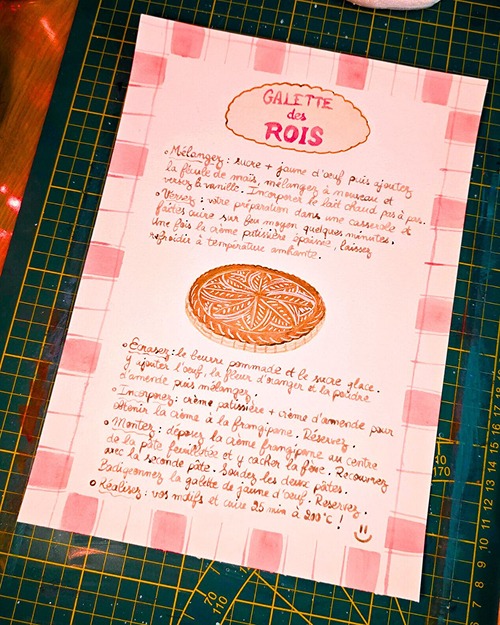 GALETTE
des
ROIS
• Mélangez : sucre + jaune d'œuf puis ajoutez
la fécule de maïs, mélangez à nouveau et
versez la vanille. Incorporer le lait chaud pas à pas.
• Versez : votre préparation dans une casserole et
faites cuire sur feu moyen quelques minutes.
Une fois la crème patissière épaissie, laissez
refroidir à température ambiante.
• Écrasez : le beurre pommade et le sucre glace.
Y ajouter l'œuf, la fleur d'oranger et la poudre
d'amende puis mélanger.
• Incorporez : crème patissière + crème d'amende pour
obtenir la crème à la frangipane. Réservez.
• Monter : déposez la crème frangipane au centre
de la pâte feuilletée et y cacher la fève. Recouvrez
avec la seconde pâte. Soudez les deux pâtes.
Badigeonnez la galette de jaune d'œuf. Réservez.
• Réalisez : vos motifs et cuire 35 min à 200°c ! :)
170
70
110